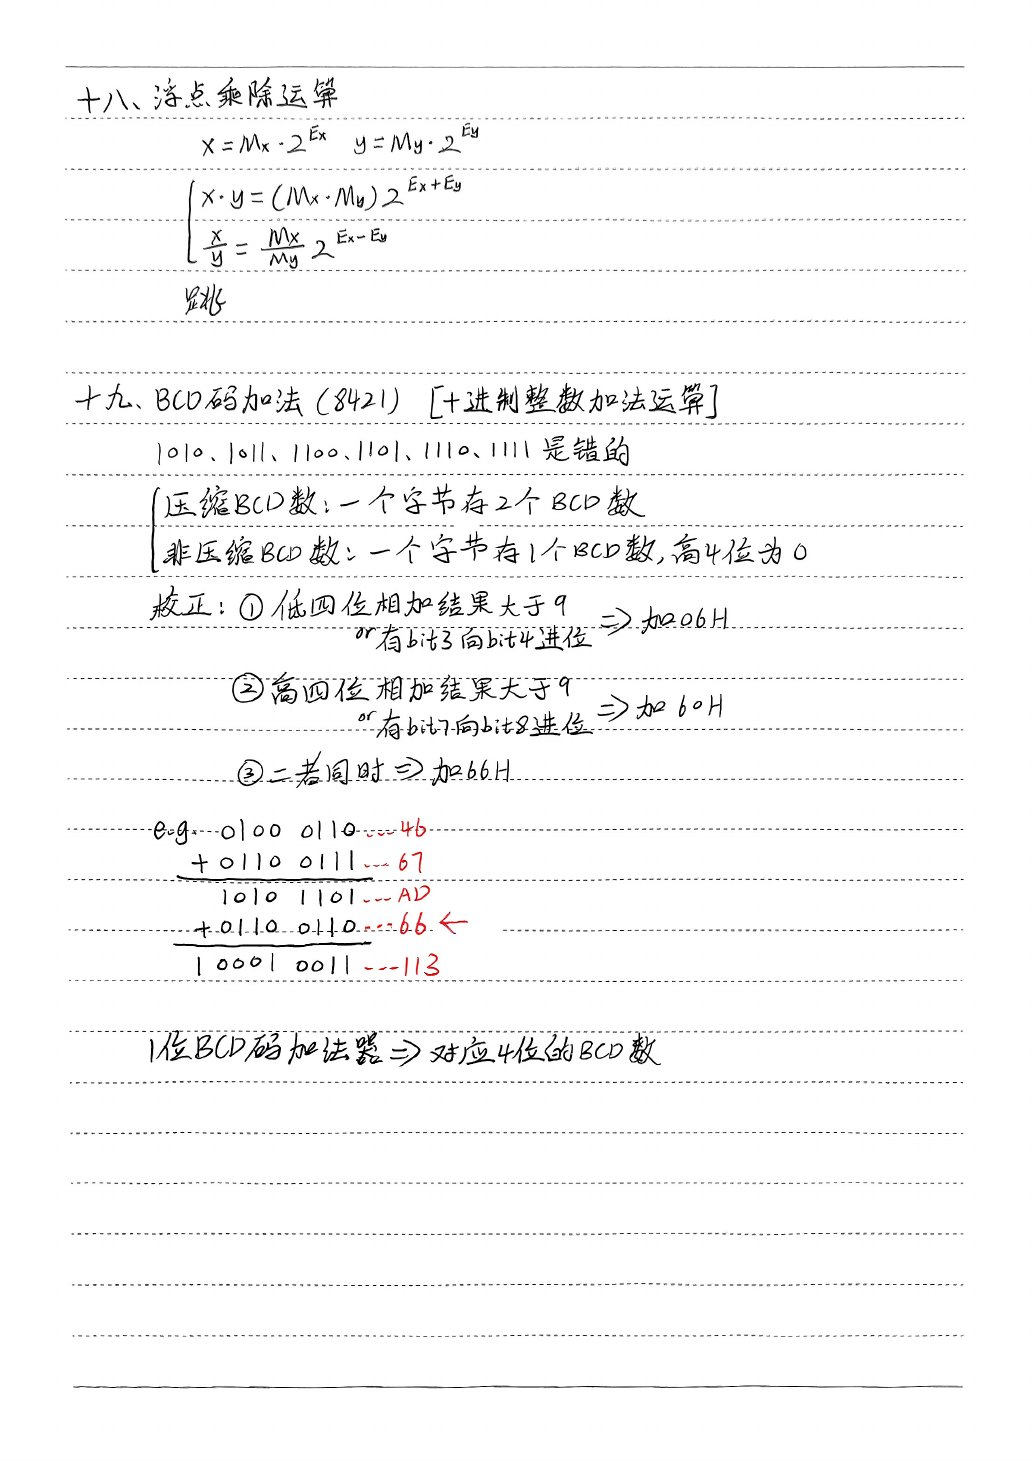 十八、浮点乘除运算
x=Mx·2^Ex y=My·2^Ey
x·y=(Mx·My)2^Ex+Ey
x/y=Mx/My 2^Ex-Ey
跳
十九、BCD码加法(8421) [十进制整数加法运算]
1010、1011、1100、1101、1110、1111是错的
压缩BCD数:一个字节存2个BCD数
非压缩BCD数:一个字节存1个BCD数,高4位为0
校正:①低四位相加结果大于9
or有bit3向bit4进位 ⇒加06H
②高四位相加结果大于9
or有bit7向bit8进位 ⇒加60H
③二者同时⇒加66H
e.g. 0100 0110 ---46
+0110 0111 ---67
1010 1101 ---AD
+0110 0110 ---66 ←
1 0001 0011 ---113
1位BCD码加法器⇒对应4位的BCD数